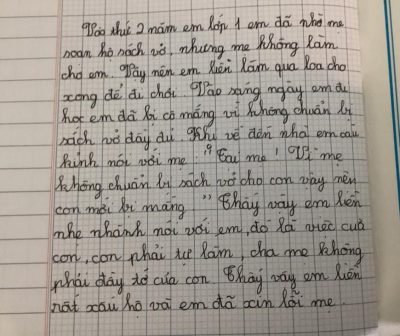 Vào thứ 2 năm em lớp 1 em đã nhờ mẹ
soạn hộ sách vở, nhưng mẹ không làm
cho em. Vậy nên em liền làm qua loa cho
xong để đi chơi. Vào sang ngày em đi
học em đã bị cô mắng vì không chuẩn bị
sách vở đầy đủ. Khi về đến nhà em cáu
kỉnh nói với mẹ: "Tại mẹ! Vì mẹ
không chuẩn bị sách vở cho con vậy nên
con mới bị mắng" Thấy vậy em liền
nhẹ nhành nói với em, đó là việc của
con, con phải tự làm, cha mẹ không
phải đầy tớ của con. Thấy vậy em liền
rất xấu hộ và em đã xin lỗi mẹ.